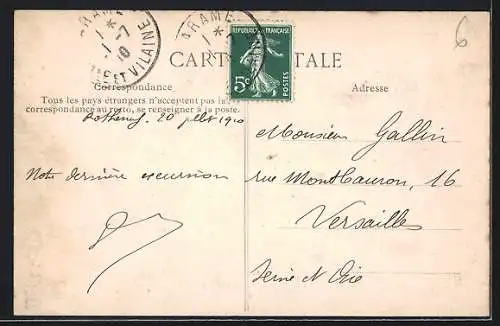 PARAMÉ
1 *
-7
10
ILLE ET VILAINE
PARAMÉ
1 *
RÉPUBLIQUE FRANÇAISE
5c
POSTES
CARTE POSTALE
Correspondance
Adresse
Tous les pays étrangers n'acceptent pas la
correspondance au recto, se renseigner à la poste.
Rotheneuf 20 juillet 1910
Notre dernière excursion
Monsieur Gallin
rue Montbauron, 16
Versailles
Seine et Oise
6